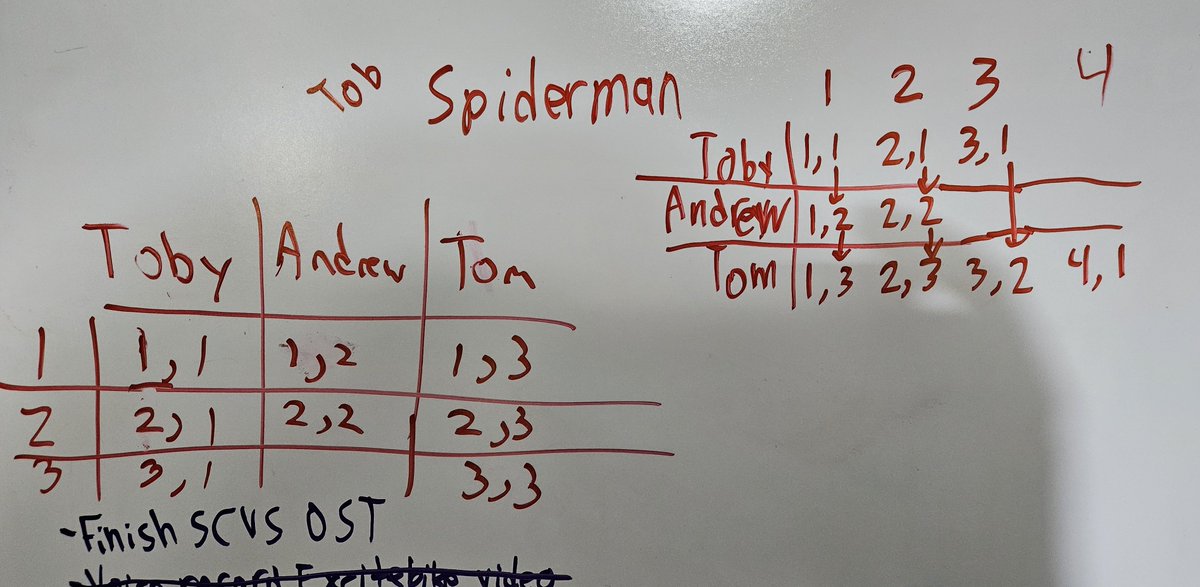 Tob Spiderman
1 2 3 4
Toby 1,1 2,1 3,1
Andrew 1,2 2,2
Tom 1,3 2,3 3,2 4,1
Toby Andrew Tom
1 1,1 1,2 1,3
2 2,1 2,2 2,3
3 3,1 3,3
-Finish SCVS OST
Excitebike video